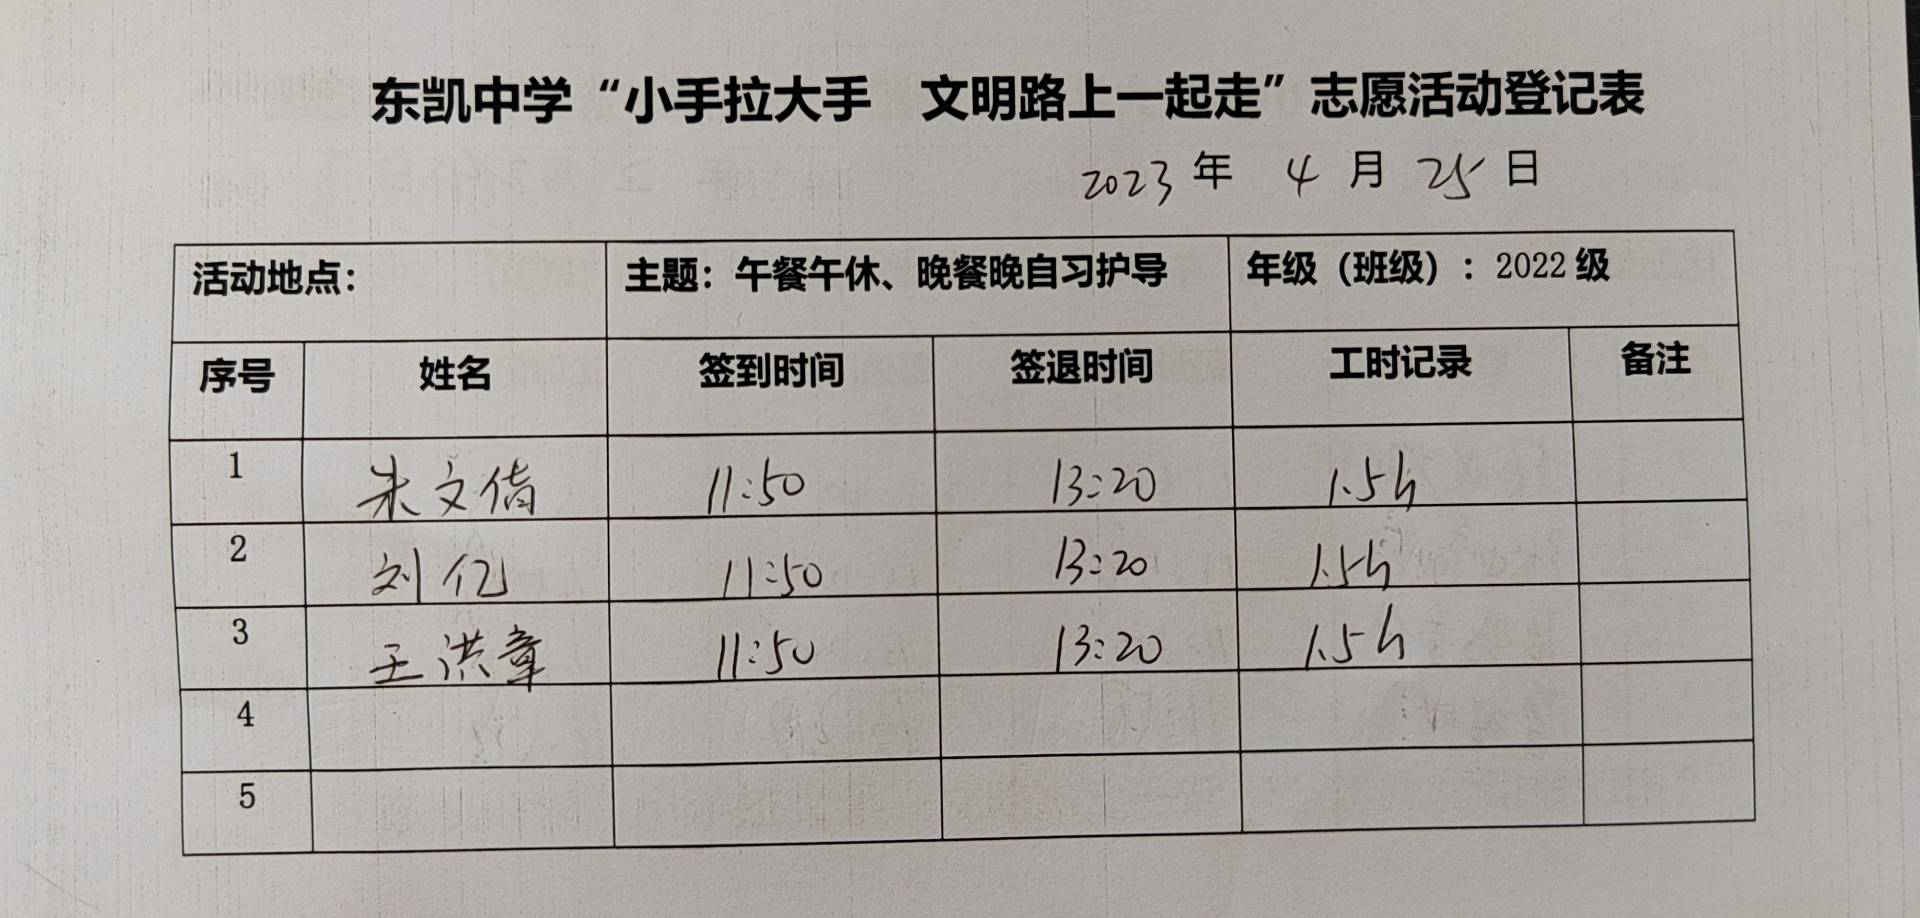 东凯中学“小手拉大手 文明路上一起走”志愿活动登记表
2023 年 4 月 25 日
活动地点： 主题：午餐午休、晚餐晚自习护导 年级（班级）：2022 级
序号 姓名 签到时间 签退时间 工时记录 备注
1 朱文倩 11:50 13:20 1.5h
2 刘亿 11:50 13:20 1.5h
3 王洪章 11:50 13:20 1.5h
4
5